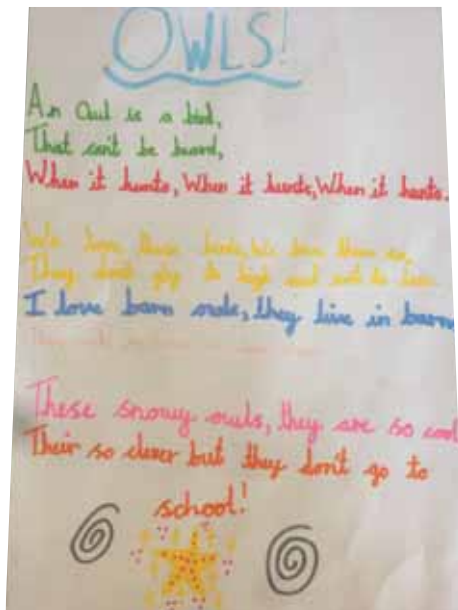 OWLS!
An Owl is a bird,
That can't be heard,
When it hunts, When it hunts, When it hunts.
We love these birds, We love them so,
They don't fly to high and not to low.
I love barn owls, they live in barns
These snowy owls, they are so cool
Their so clever but they don't go to
school!